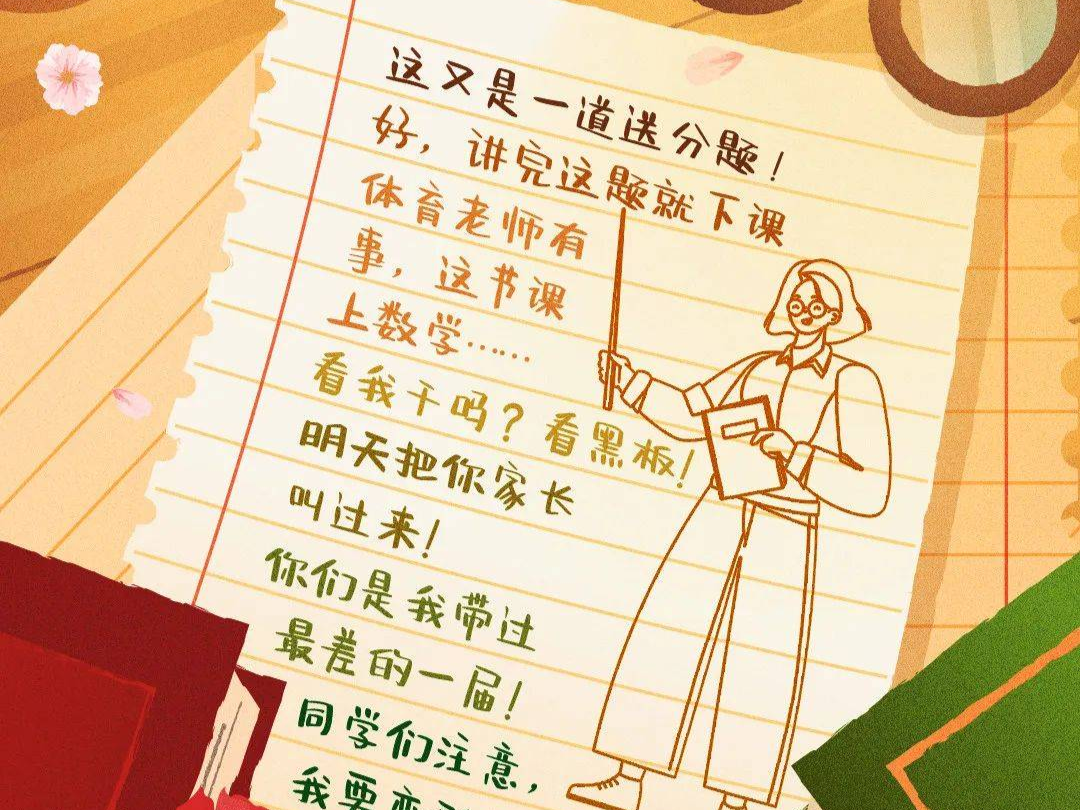 这又是一道送分题！
好，讲完这题就下课
体育老师有
事，这书课
上数学……
看我干吗？看黑板！
明天把你家长
叫过来！
你们是我带过
最差的一届！
同学们注意，
我要变